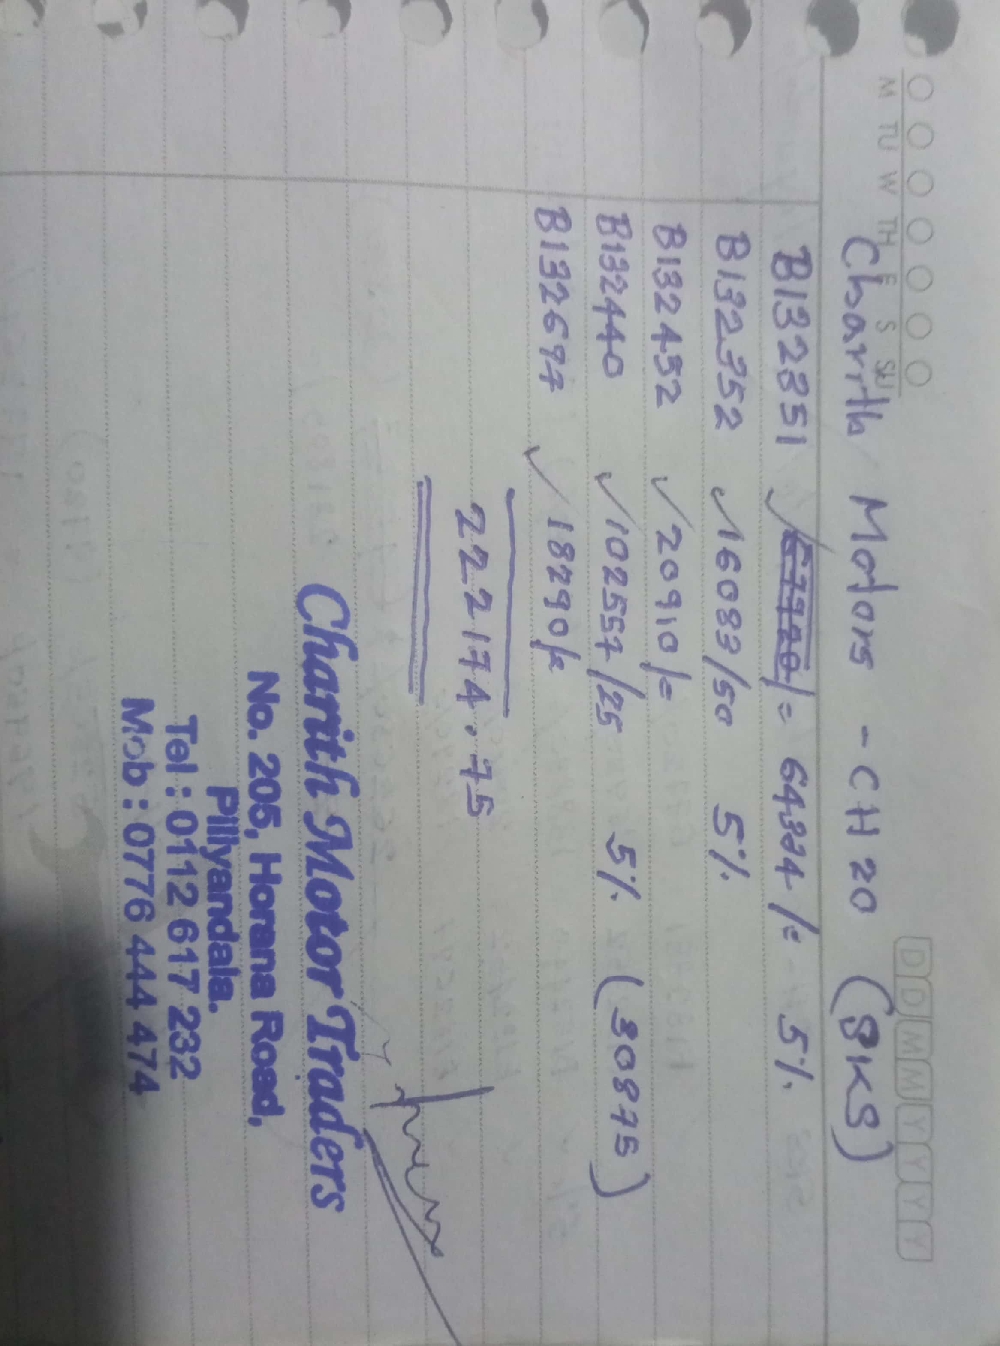 M TU W TH F S SU
D D M M Y Y Y Y
Charith Motors - CH 20 (SKS)
B132351 ✓ 67720/= 64334/= - 5%
B132352 ✓ 16083/50 5%
B132452 ✓ 20910/=
B132440 ✓ 102557/25 5% (30875)
B132697 ✓ 18290/=
222174.75
Charith Motor Traders
No. 205, Horana Road,
Piliyandala.
Tel : 0112 617 232
Mob : 0776 444 474